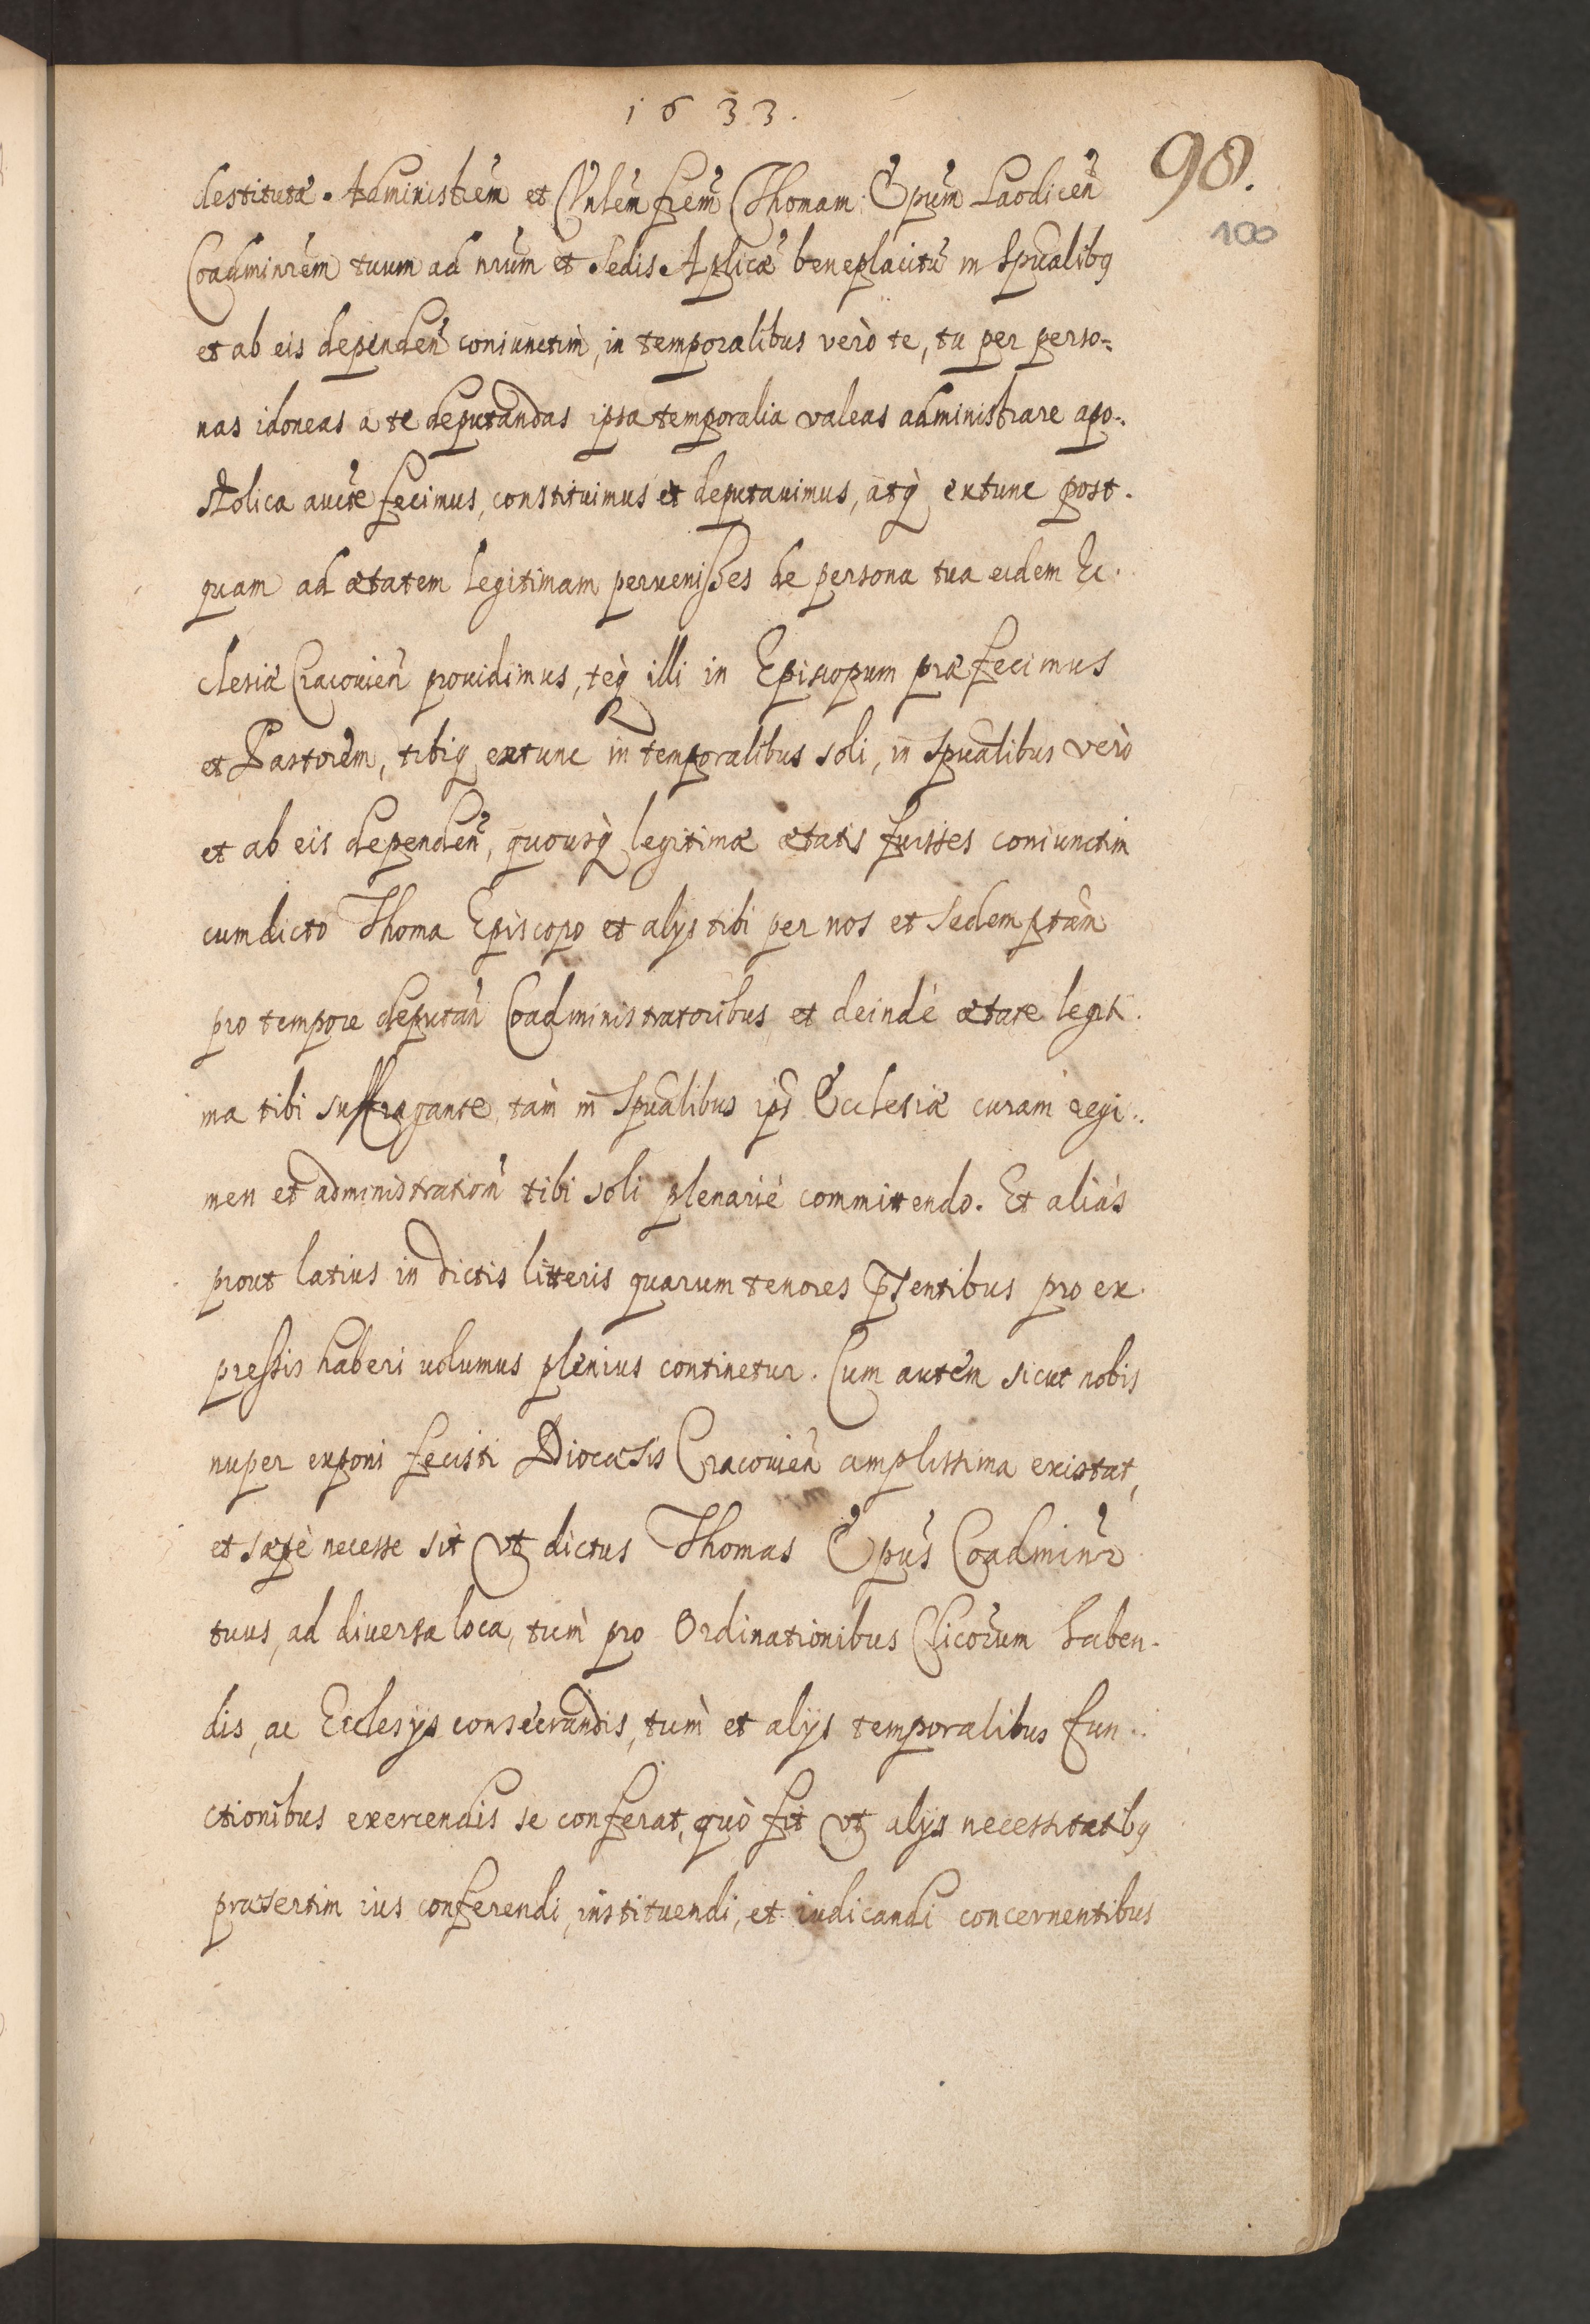 1633.
98.
100
destitutæ. Administrẽm et Vnlẽm frẽm Thomam Ẽpũm Laodiceñ
Coadminrẽm tuum ad nrũm et Sedis Aplicæ beneplacitũ in Spũalibq
et ab eis dependeñ coniunctim, in temporalibus verò te, tu per perso=
nas idoneas a te deputandas ipsa temporalia valeas administrare apo-
stolica aucte fecimus, constituimus et deputauimus, atq̃ extunc post-
quam ad ætatem legitimam peruenisses de persona tua eidem Ec-
clesiæ Cracouieñ prouidimus, teq̃ illi in Episcopum præfecimus
et Pastorem, tibiq extunc in temporalibus soli, in spũalibus verò
et ab eis dependeñ, quousq̃ legitimæ ætatis fuisses coniunctim
cum dicto Thoma Episcopo et alijs tibi per nos et Sedem ptãm
pro tempore deputañ Coadministratoribus, et deindè ætate legiti-
ma tibi suffragante, tàm in Spũalibus ips̃ Ecclesiæ curam regi-
men et administrationẽ tibi soli plenariè committendo. Et aliàs
prout latius in dictis litteris quarum tenores p̃sentibus pro ex-
pressis haberi volumus plenius continetur. Cum autem sicut nobis
nuper exponi fecisti Diocæsis Cracouieñ amplissima existat,
et sæpè necesse sit vt dictus Thomas Ẽpũs Coadminr̃
tuus, ad diuersa loca, tùm pro Ordinationibus Clicorũm haben-
dis, ac Ecclesijs consecrandis, tùm et alijs temporalibus fun-
ctionibus exercendis se conferat, quò fit vt alijs necessitatibq
præsertim ius conferendi, instituendi, et iudicandi concernentibus